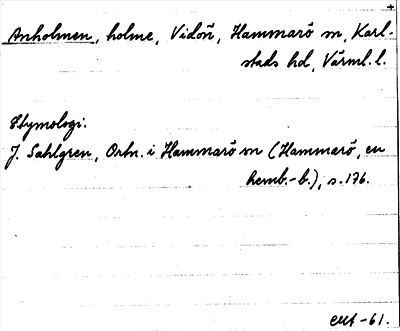 +
Anholmen, holme, Vidöñ, Hammarö sn, Karl-
stads hd, Värml. l.
Etymologi.
J. Sahlgren, Ortn. i Hammarö sn (Hammarö, en
hemb.-b.), s. 176.
-61.